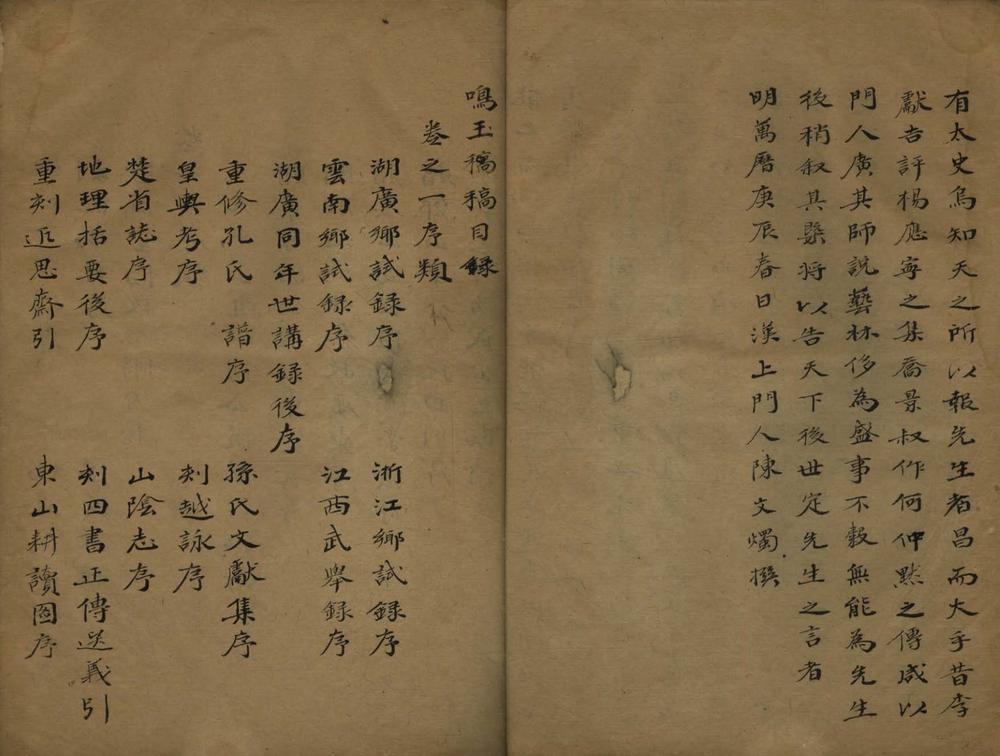 有太史烏知天之所以報先生者昌而大乎昔李
獻吉評楊應寧之集喬景叔作何仲默之傳咸以
門人廣其師說藝林侈為盛事不穀無能為先生
後稍叙其槩將以告天下後世定先生之言者
明萬曆庚辰春日漢上門人陳文燭撰
鳴玉稿稿目錄
卷之一序類
湖廣鄉試錄序 浙江鄉試录序
雲南鄉試錄序 江西武舉錄序
湖廣同年世講錄後序
重修孔氏譜序 孫氏文獻集序
皇輿考序 刻越詠序
楚省誌序 山陰志序
地理括要後序 刻四書正傳送義引
重刻近思齋引 東山耕讀圖序